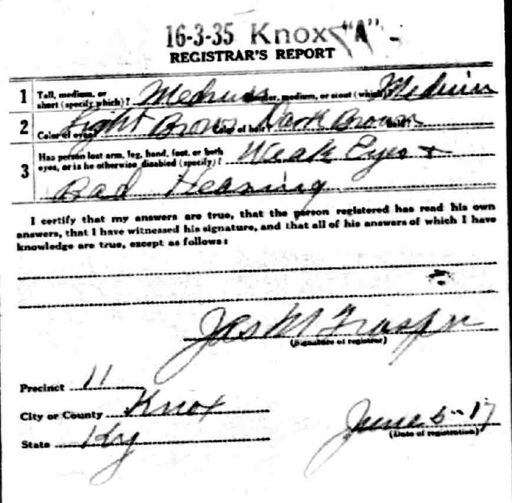 16-3-35 Knox "A" -
REGISTRAR'S REPORT
1 Tall, medium, or short (specify which)? Medium Slender, medium, or stout (which)? Medium
2 Color of eyes? Light Brown Color of hair? Dark Brown Bald?
3 Has person lost arm, leg, hand, foot, or both eyes, or is he otherwise disabled (specify)? Weak Eyes +
Bad Hearing
I certify that my answers are true, that the person registered has read his own
answers, that I have witnessed his signature, and that all of his answers of which I have
knowledge are true, except as follows:
Jas M
(Signature of registrar)
Precinct 11
City or County Knox
State Ky
June 5-17
(Date of registration)